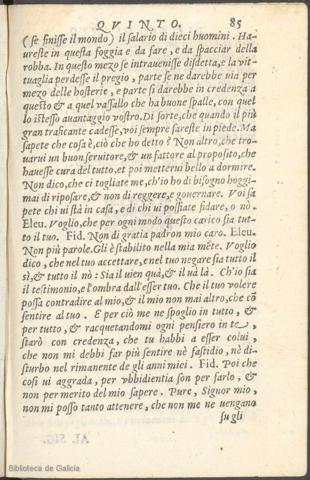 QVINTO. 85
(se finisse il mondo) il salario di dieci huomini. Ha-
ureste in questa foggia e da fare, e da spacciar della
robba. In questo mezo se intrauenisse disdetta, e la vit-
tuaglia perdesse il pregio, parte se ne darebbe via per
mezo delle hosterie, e parte si darebbe in credenza a
questo & a quel vassallo che ha buone spalle, con quel
lo istesso auantaggio vostro. Di sorte, che quando il più
gran traficante cadesse, voi sempre sareste in piede. Ma
sapete che cosa è, ciò che ho detto? Non altro, che tro-
uarui un buon seruitore, & un fattore al proposito, che
hauesse cura del tutto, et poi metterui bello a dormire.
Non dico, che ci togliate me, ch'io ho di bisogno hoggi-
mai di riposare, & non di reggere, e gouernare. Voi sa
pete chi ui stà in casa, e di chi ui possiate fidare, o nò.
Eleu. Voglio, che per ogni modo questo carico sia tut-
to il tuo. Fid. Non di gratia padron mio caro. Eleu.
Non più parole. Gli è stabilito nella mia mẽte. Voglio
dico, che nel tuo accettare, e nel tuo negare sia tutto il
sì, & tutto il nò: Sia il uien quà, & il uà là. Ch'io sia
il testimonio, e l'ombra dall'esser tuo. Che il tuo volere
possa contradire al mio, & il mio non mai altro, che cõ
sentire al tuo. E per ciò me ne spoglio in tutto, &
per tutto, & racquetandomi ogni pensiero in te,
starò con credenza, che tu habbi a esser colui,
che non mi debbi far più sentire nè fastidio, nè di-
sturbo nel rimanente de gli anni miei. Fid. Poi che
così ui aggrada, per vbbidientia son per farlo, &
non per merito del mio sapere. Pure, Signor mio,
non mi posso tanto attenere, che non me ne uengano
su gli
Biblioteca de Galicia